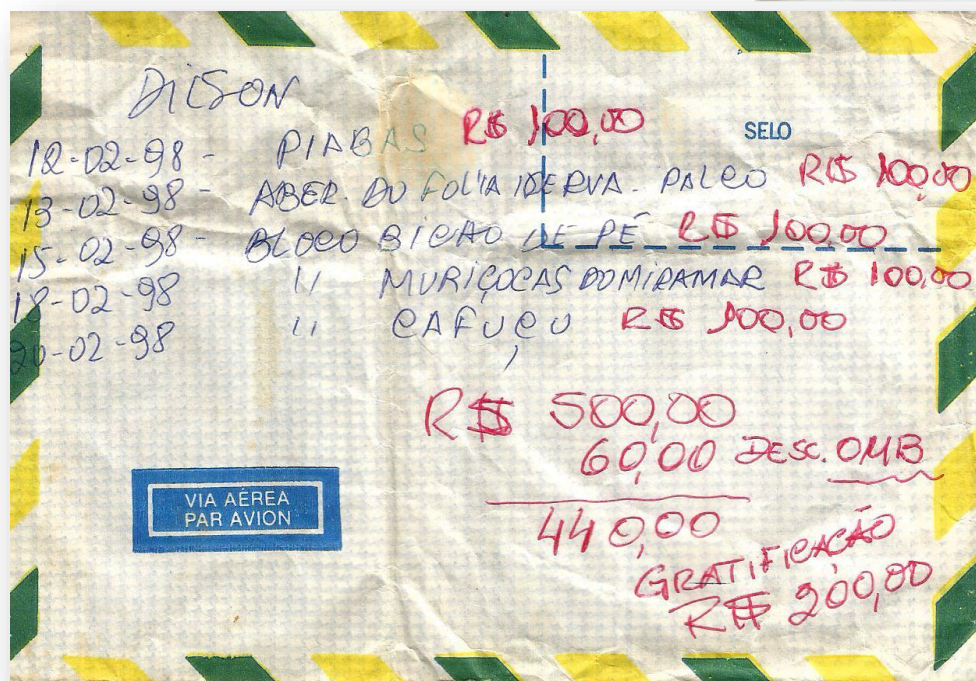 DILSON
12-02-98 - PIABAS R$ 100,00
SELO
13-02-98 - ABER. DO FOLIA PALCO R$ 100,00
15-02-98 - BLOCO BICHO DE PÉ R$ 100,00
18-02-98 " MURIÇOCAS DO MIRAMAR R$ 100,00
20-02-98 " CAFUÇU R$ 100,00
R$ 500,00
60,00 DESC. OMB
440,00
GRATIFICAÇÃO
R$ 200,00
VIA AÉREA
PAR AVION